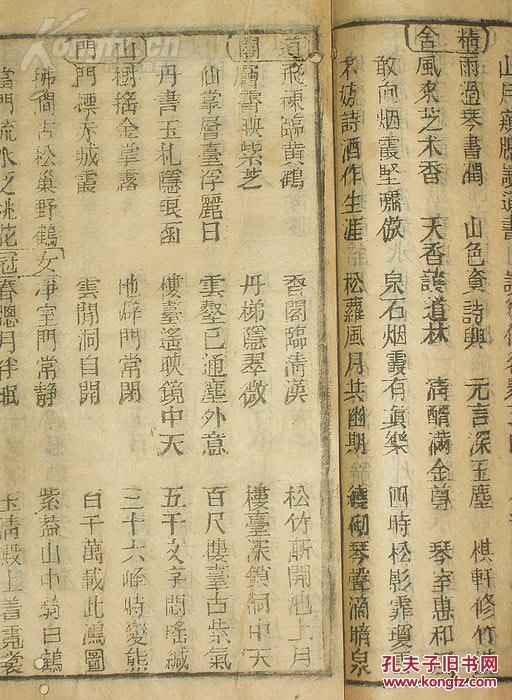 精舍
雨過琴書潤 山色資詩興 元言深玉麈 棋軒修竹
風來芝术香 天香護道林 清醑滿金尊 琴室惠和
敢向烟霞堅嘯傲 泉石烟霞有真樂 四時松影霏
詩酒作生涯 松蘿風月共幽期 繞砌琴聲滴暗泉
道閣
飛棟臨黃鶴 香閣臨清漢 松竹漸開池上月
層霄映紫芝 丹梯隱翠微 樓臺深鎖洞中天
仙掌層臺浮麗日 雲壑已通塵外意 百尺樓臺占紫氣
丹書玉札隱琅函 樓臺遙映鏡中天 五千文字閟瑤緘
山門
樹搖金掌露 地僻門常閉 三十六峰時變態
門標赤城霞 雲閒洞自開 百千萬載此鴻圖
拂簡古松巢野鶴
當門流水泛桃花
女冠
淨室門常靜 紫蓋山中騎白鶴
春牕月伴眠 玉清殿上
孔夫子旧书网
KONGFZ.COM
www.kongfz.com